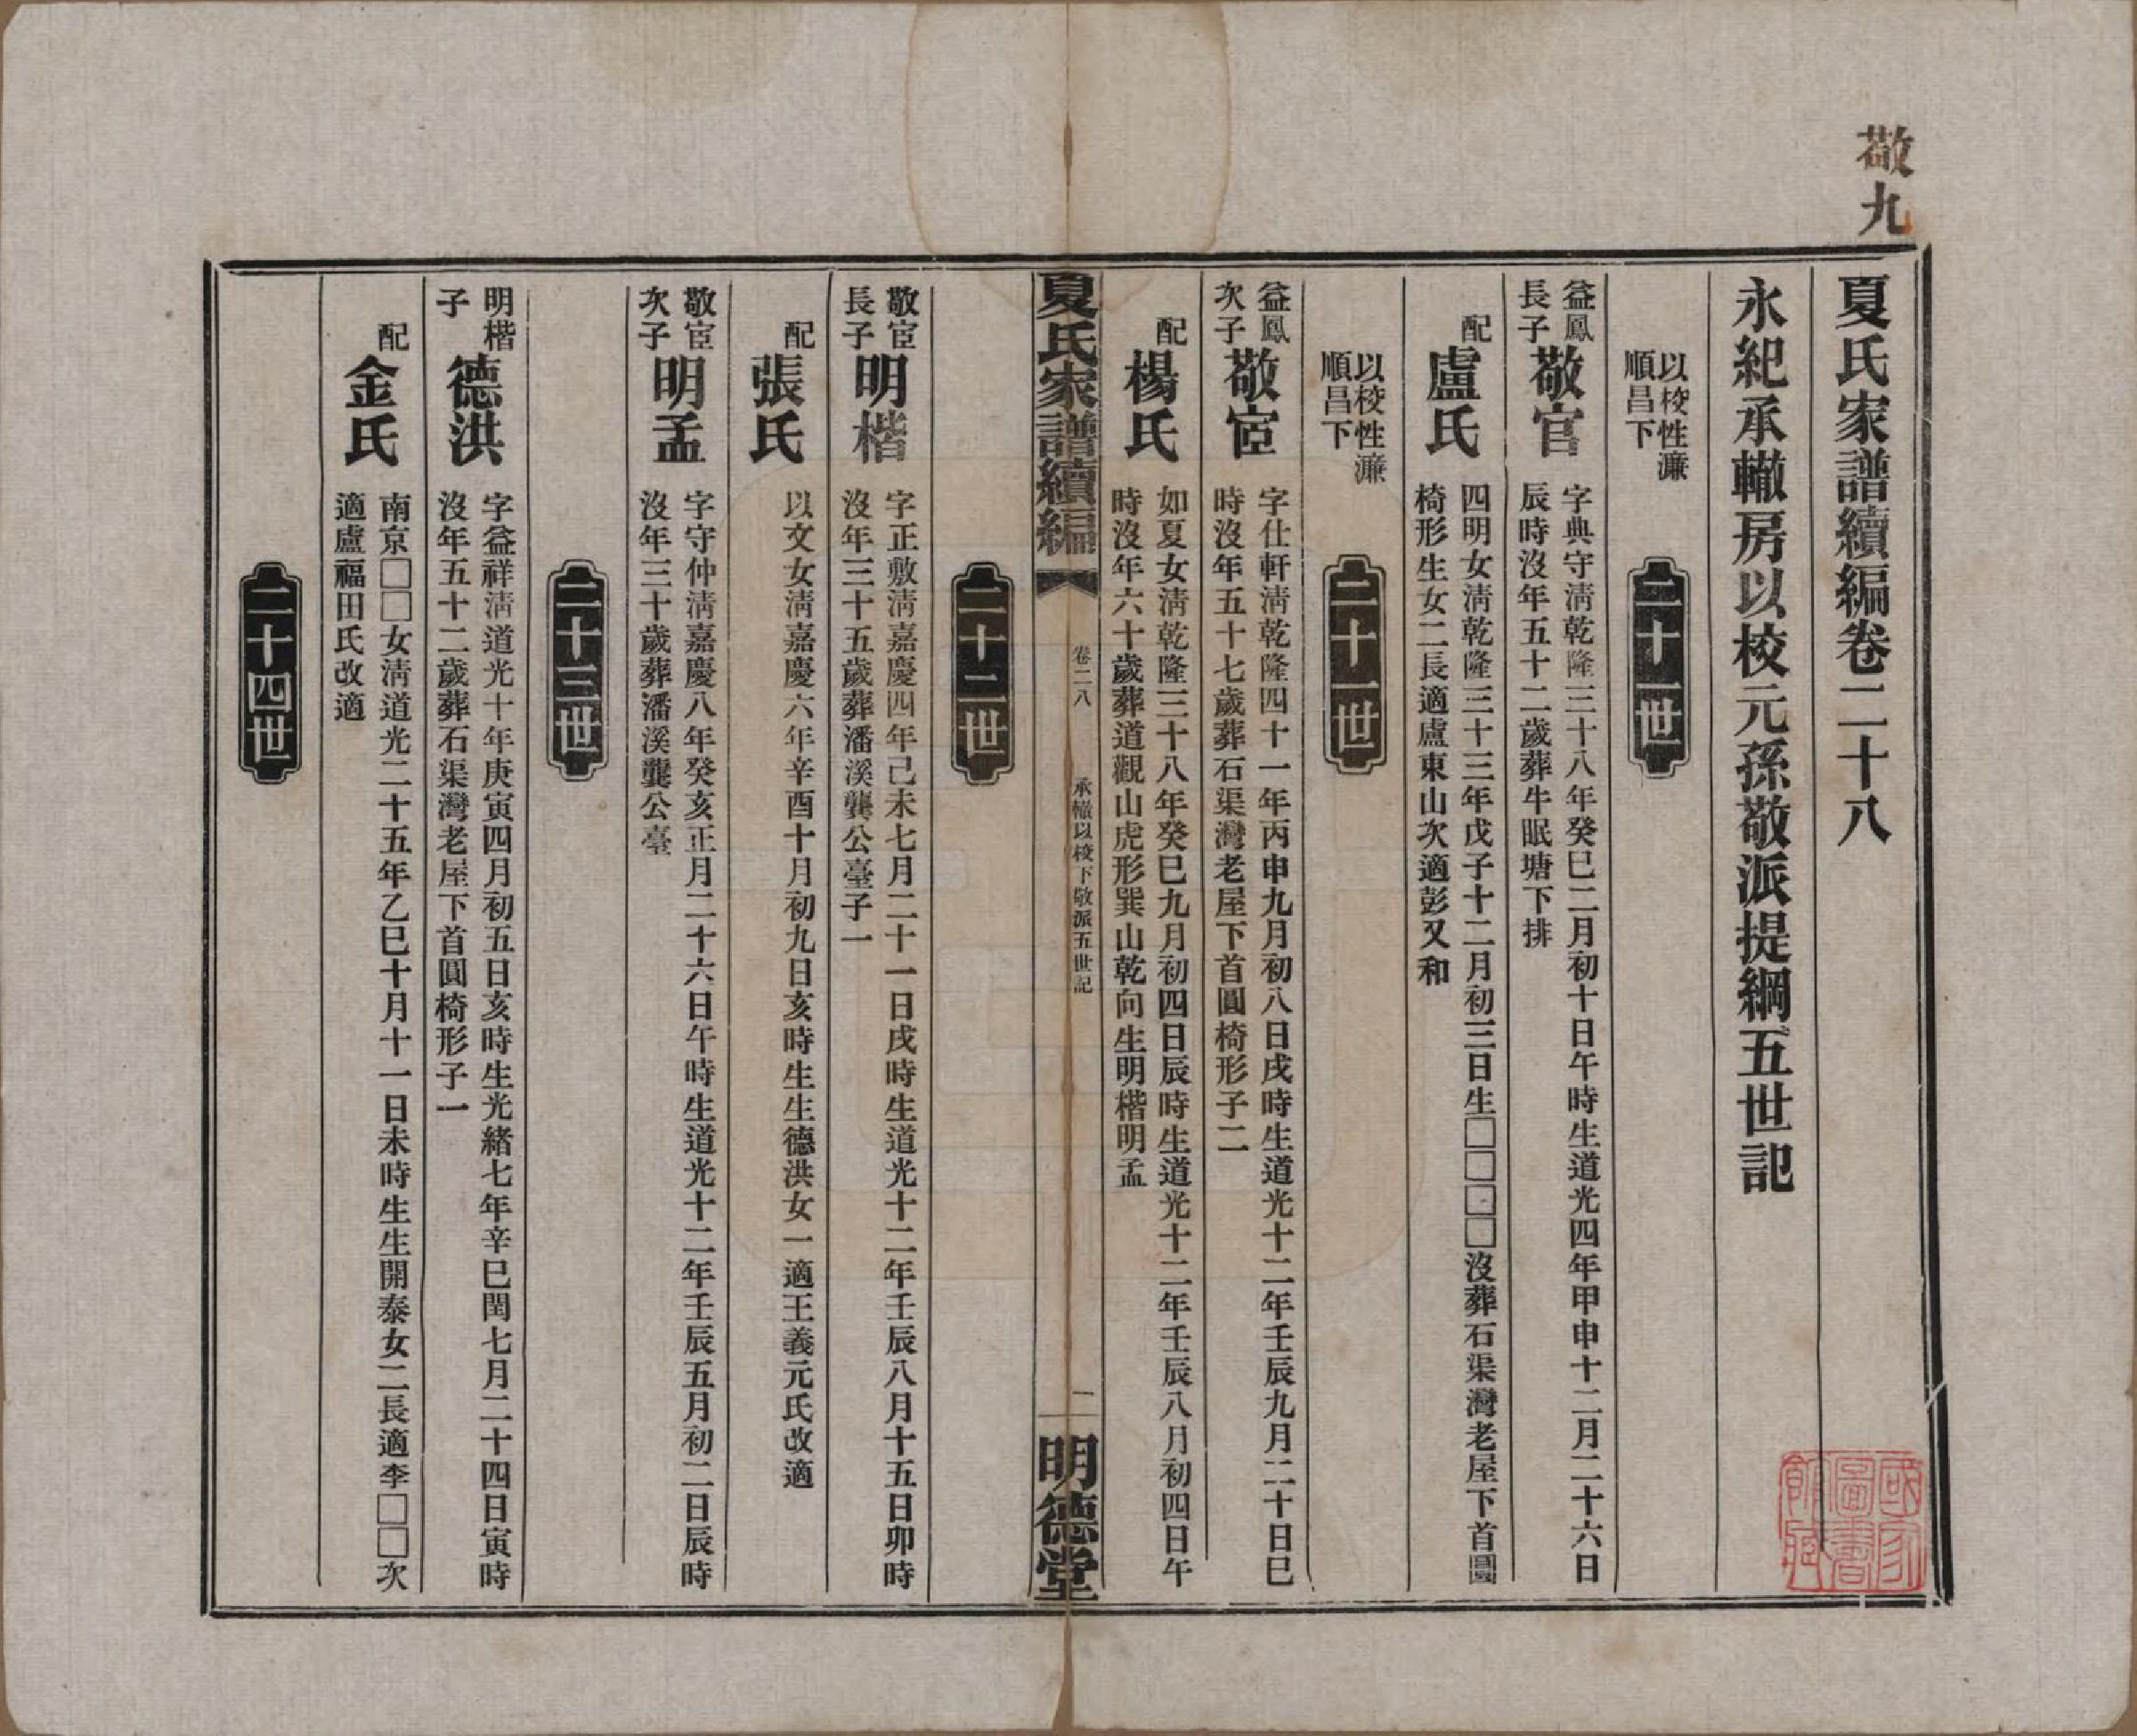 敬九
夏氏家譜續編卷二十八
永紀承轍房以校元孫敬派提綱五世記
以校性濂
順昌下
二十一世
益鳳
長子
敬官
字典守清乾隆三十八年癸巳二月初十日午時生道光四年甲申十二月二十六日
辰時沒年五十二歲葬牛眠塘下排
配
盧氏
四明女清乾隆三十三年戊子十二月初三日生□□□□沒葬石渠灣老屋下首圓
椅形生女二長適盧東山次適彭又和
以校性濂
順昌下
二十一世
益鳳
次子
敬宧
字仕軒清乾隆四十一年丙申九月初八日戌時生道光十二年壬辰九月二十日巳
時沒年五十七歲葬石渠灣老屋下首圓椅形子二
配
楊氏
如夏女清乾隆三十八年癸巳九月初四日辰時生道光十二年壬辰八月初四日午
時沒年六十歲葬道觀山虎形巽山乾向生明楷明孟
夏氏家譜續編
卷二八
承轍以校下敬派五世記
一
明德堂
二十二世
敬宧
長子
明楷
字正敷清嘉慶四年己未七月二十一日戌時生道光十二年壬辰八月十五日卯時
沒年三十五歲葬潘溪龔公臺子一
配
張氏
以文女清嘉慶六年辛酉十月初九日亥時生生德洪女一適王義元氏改適
敬宧
次子
明孟
字守仲清嘉慶八年癸亥正月二十六日午時生道光十二年壬辰五月初二日辰時
沒年三十歲葬潘溪龔公臺
二十三世
明楷
子
德洪
字益祥清道光十年庚寅四月初五日亥時生光緒七年辛巳閏七月二十四日寅時
沒年五十二歲葬石渠灣老屋下首圓椅形子一
配
金氏
南京□□女清道光二十五年乙巳十月十一日未時生生開泰女二長適李□□次
適盧福田氏改適
二十四世
國家
圖書
館藏